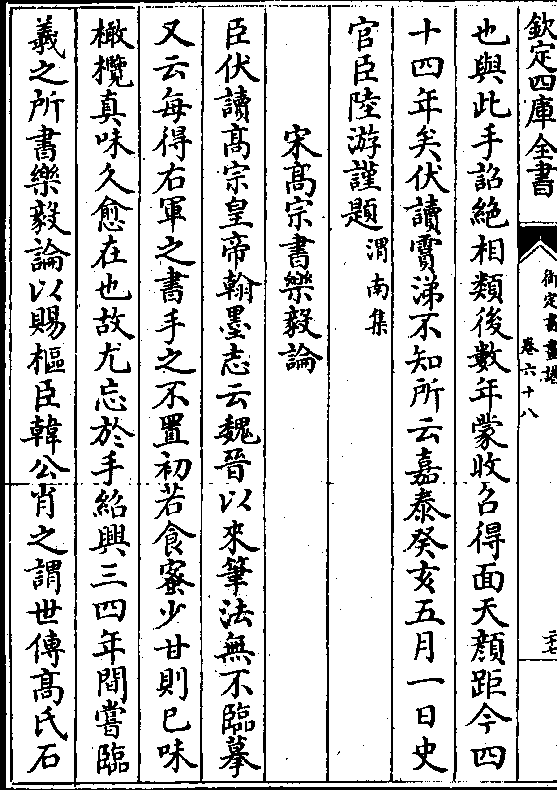 欽定四庫全書
御定書畫譜
卷六十八
也與此手詔絶相類後數年蒙收召得面天顔距今四
十四年矣伏讀霣涕不知所云嘉泰癸亥五月一日史
官臣陸游謹題渭南集
宋髙宗書樂毅論
臣伏讀髙宗皇帝翰墨志云魏晉以來筆法無不臨摹
又云每得右軍之書手之不置初若食蜜少甘則已味
橄欖真味久愈在也故尤忘於手紹興三四年間嘗臨
羲之所書樂毅論以賜樞臣韓公肖之謂世傳髙氏石